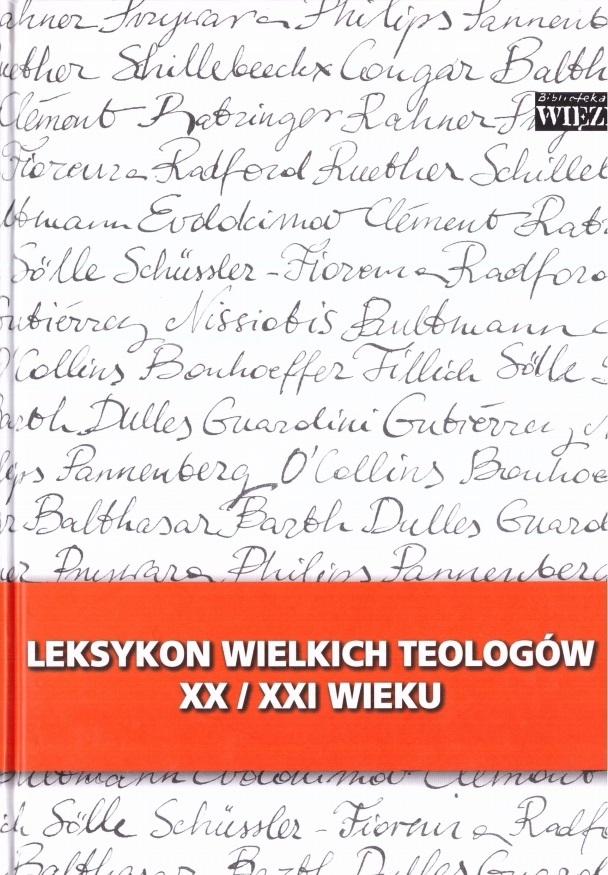 ahner Przywara Philips Pannenb
uether Schillebeeckx Congar Balth
Clément Ratzinger Rahner Prz
Biblioteka
WIĘZI
Fiorenza Radford Ruether Schilleb
ltmann Evdokimov Clément Ratz
Sölle Schüssler-Fiorenza Radford
Gutiérrez Nissiotis Bultmann
O'Collins Bonhoeffer Tillich Sölle
Barth Dulles Guardini Gutiérrez N
ips Pannenberg O'Collins Bonhoe
r Balthasar Barth Dulles Guard
er Przywara Philips Pannenberg
LEKSYKON WIELKICH TEOLOGÓW
XX / XXI WIEKU
ultmann Evdokimov Clément
ch Sölle Schüssler-Fiorenza Radfo
Balthasar Barth Dulles Guard